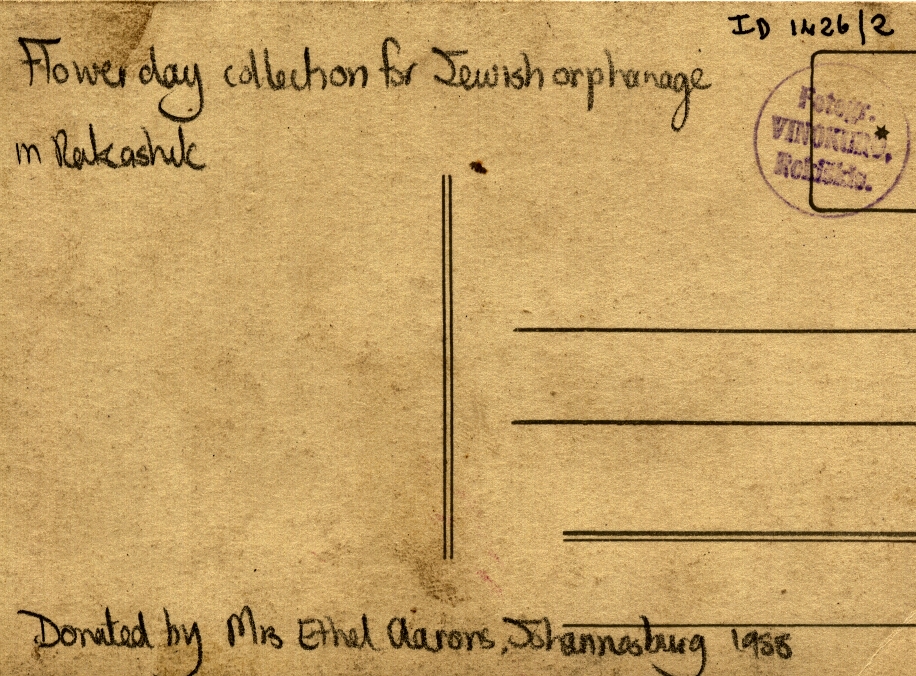 ID 1426/2
Flower day collection for Jewish orphanage
in Rakashik
Fotogr.
VINOKURO.
Rokiškis.
Donated by Mrs Ethel Aarons, Johannesburg